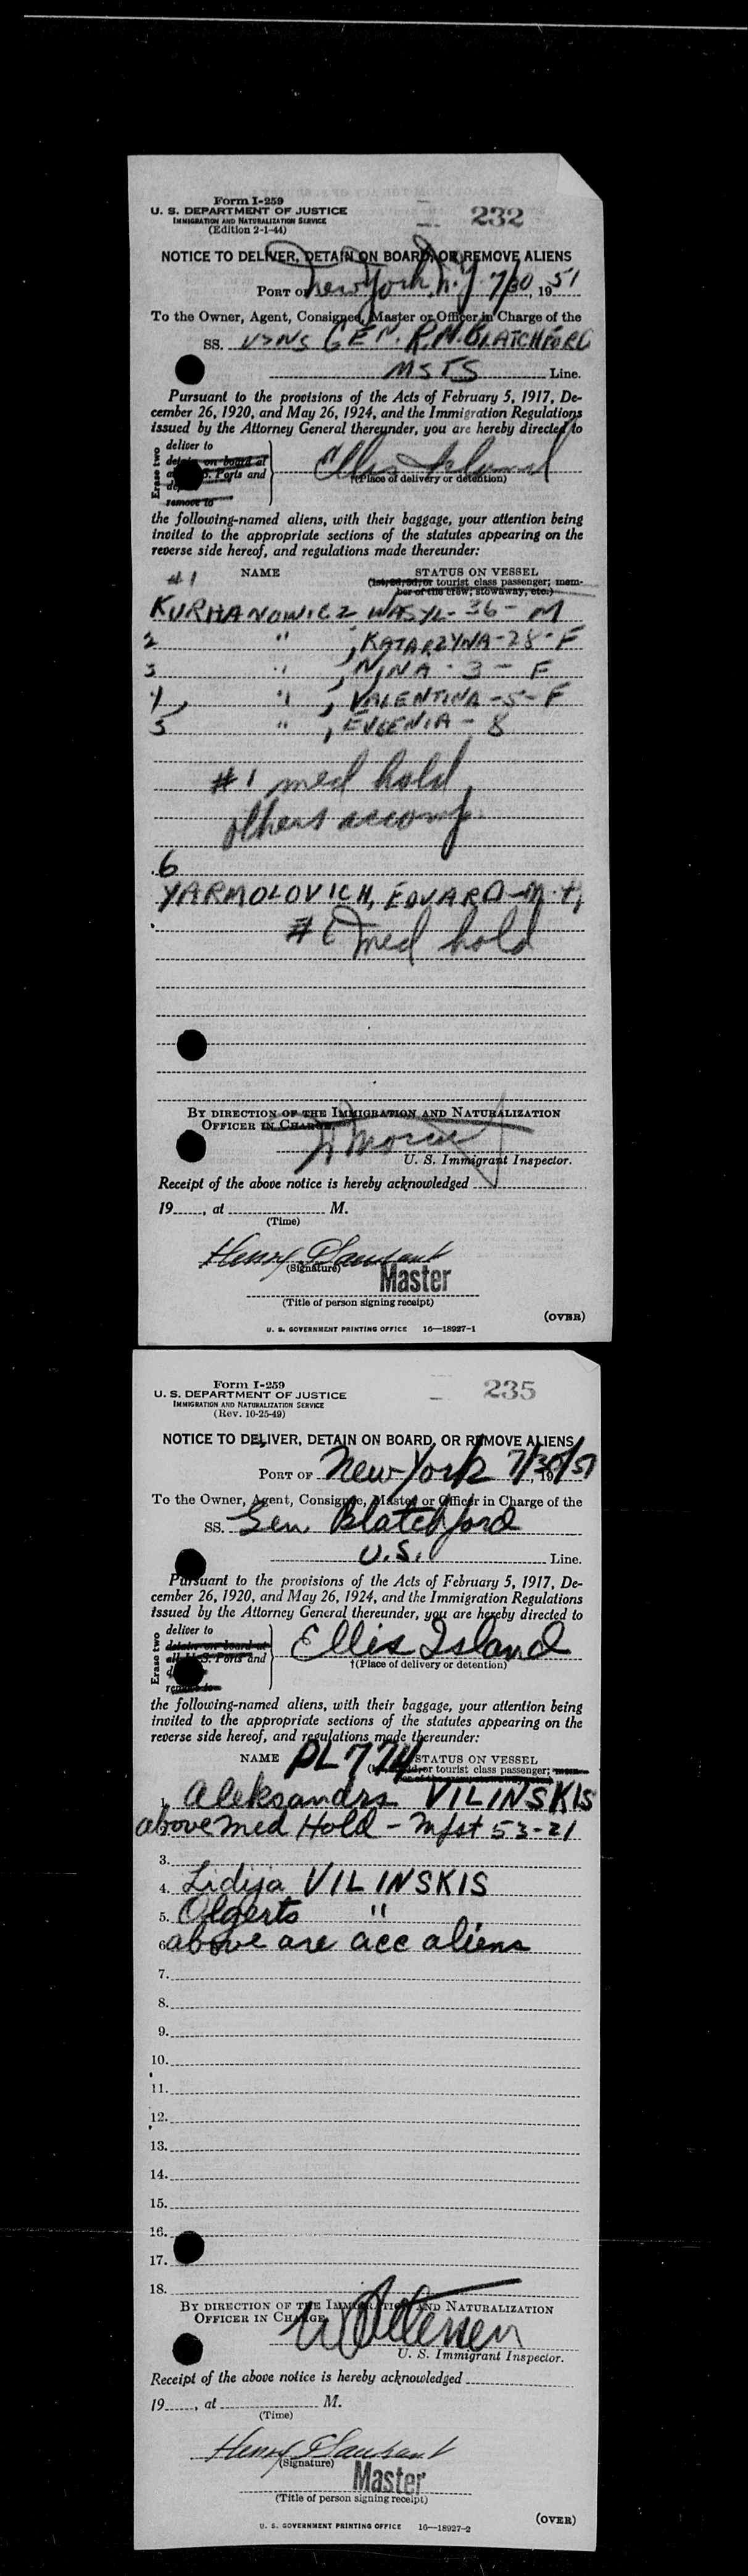 Form I-259
U. S. DEPARTMENT OF JUSTICE
IMMIGRATION AND NATURALIZATION SERVICE
(Edition 2-1-44)
232
NOTICE TO DELIVER, DETAIN ON BOARD, OR REMOVE ALIENS
PORT OF New York, N.Y. 7/30, 1951
To the Owner, Agent, Consignee, Master or Officer in Charge of the
SS. USNS GEN. R.M. BLATCHFORD
MSTS Line.
Pursuant to the provisions of the Acts of February 5, 1917, De-
cember 26, 1920, and May 26, 1924, and the Immigration Regulations
issued by the Attorney General thereunder, you are hereby directed to
Erase two
deliver to
detain on board at
S. Ports and
remove to
Ellis Island
†(Place of delivery or detention)
the following-named aliens, with their baggage, your attention being
invited to the appropriate sections of the statutes appearing on the
reverse side hereof, and regulations made thereunder:
#1 NAME STATUS ON VESSEL
or tourist class passenger; mem-
ber of the crew; stowaway, etc.)
KURHANOWICZ WASYL-36-M
2 " , KATARZYNA-28-F
3 " , NINA-3-F
4, " , VALENTINA-5-F
5 " , EUGENIA-8
#1 med hold,
others accomp.
6
YARMOLOVICH, EDVARD-M.
#6 med hold
BY DIRECTION OF THE IMMIGRATION AND NATURALIZATION
OFFICER IN CHARGE,
U. S. Immigrant Inspector.
Receipt of the above notice is hereby acknowledged
19......, at ...... M.
(Time)
Henry
(Signature)
Master
(Title of person signing receipt)
(OVER)
U. S. GOVERNMENT PRINTING OFFICE 16—18927-1
Form I-259
U. S. DEPARTMENT OF JUSTICE
IMMIGRATION AND NATURALIZATION SERVICE
(Rev. 10-25-49)
235
NOTICE TO DELIVER, DETAIN ON BOARD, OR REMOVE ALIENS
PORT OF New York 7/30/51
To the Owner, Agent, Consignee, Master or Officer in Charge of the
SS. Gen. Blatchford
U.S. Line.
Pursuant to the provisions of the Acts of February 5, 1917, De-
cember 26, 1920, and May 26, 1924, and the Immigration Regulations
issued by the Attorney General thereunder, you are hereby directed to
Erase two
deliver to
detain on board at
all U.S. Ports and
Ellis Island
†(Place of delivery or detention)
the following-named aliens, with their baggage, your attention being
invited to the appropriate sections of the statutes appearing on the
reverse side hereof, and regulations made thereunder:
NAME PL 774 STATUS ON VESSEL
or tourist class passenger;
1. Aleksandrs VILINSKIS
above med Hold - mfst 53-21
3.
4. Lidija VILINSKIS
5. Olgerts "
6. above are acc aliens
7.
8.
9.
10.
11.
12.
13.
14.
15.
16.
17.
18.
BY DIRECTION OF THE IMMIGRATION AND NATURALIZATION
OFFICER IN CHARGE,
U. S. Immigrant Inspector.
Receipt of the above notice is hereby acknowledged
19......, at ...... M.
(Time)
Henry
(Signature)
Master
(Title of person signing receipt)
(OVER)
U. S. GOVERNMENT PRINTING OFFICE 16—18927-2